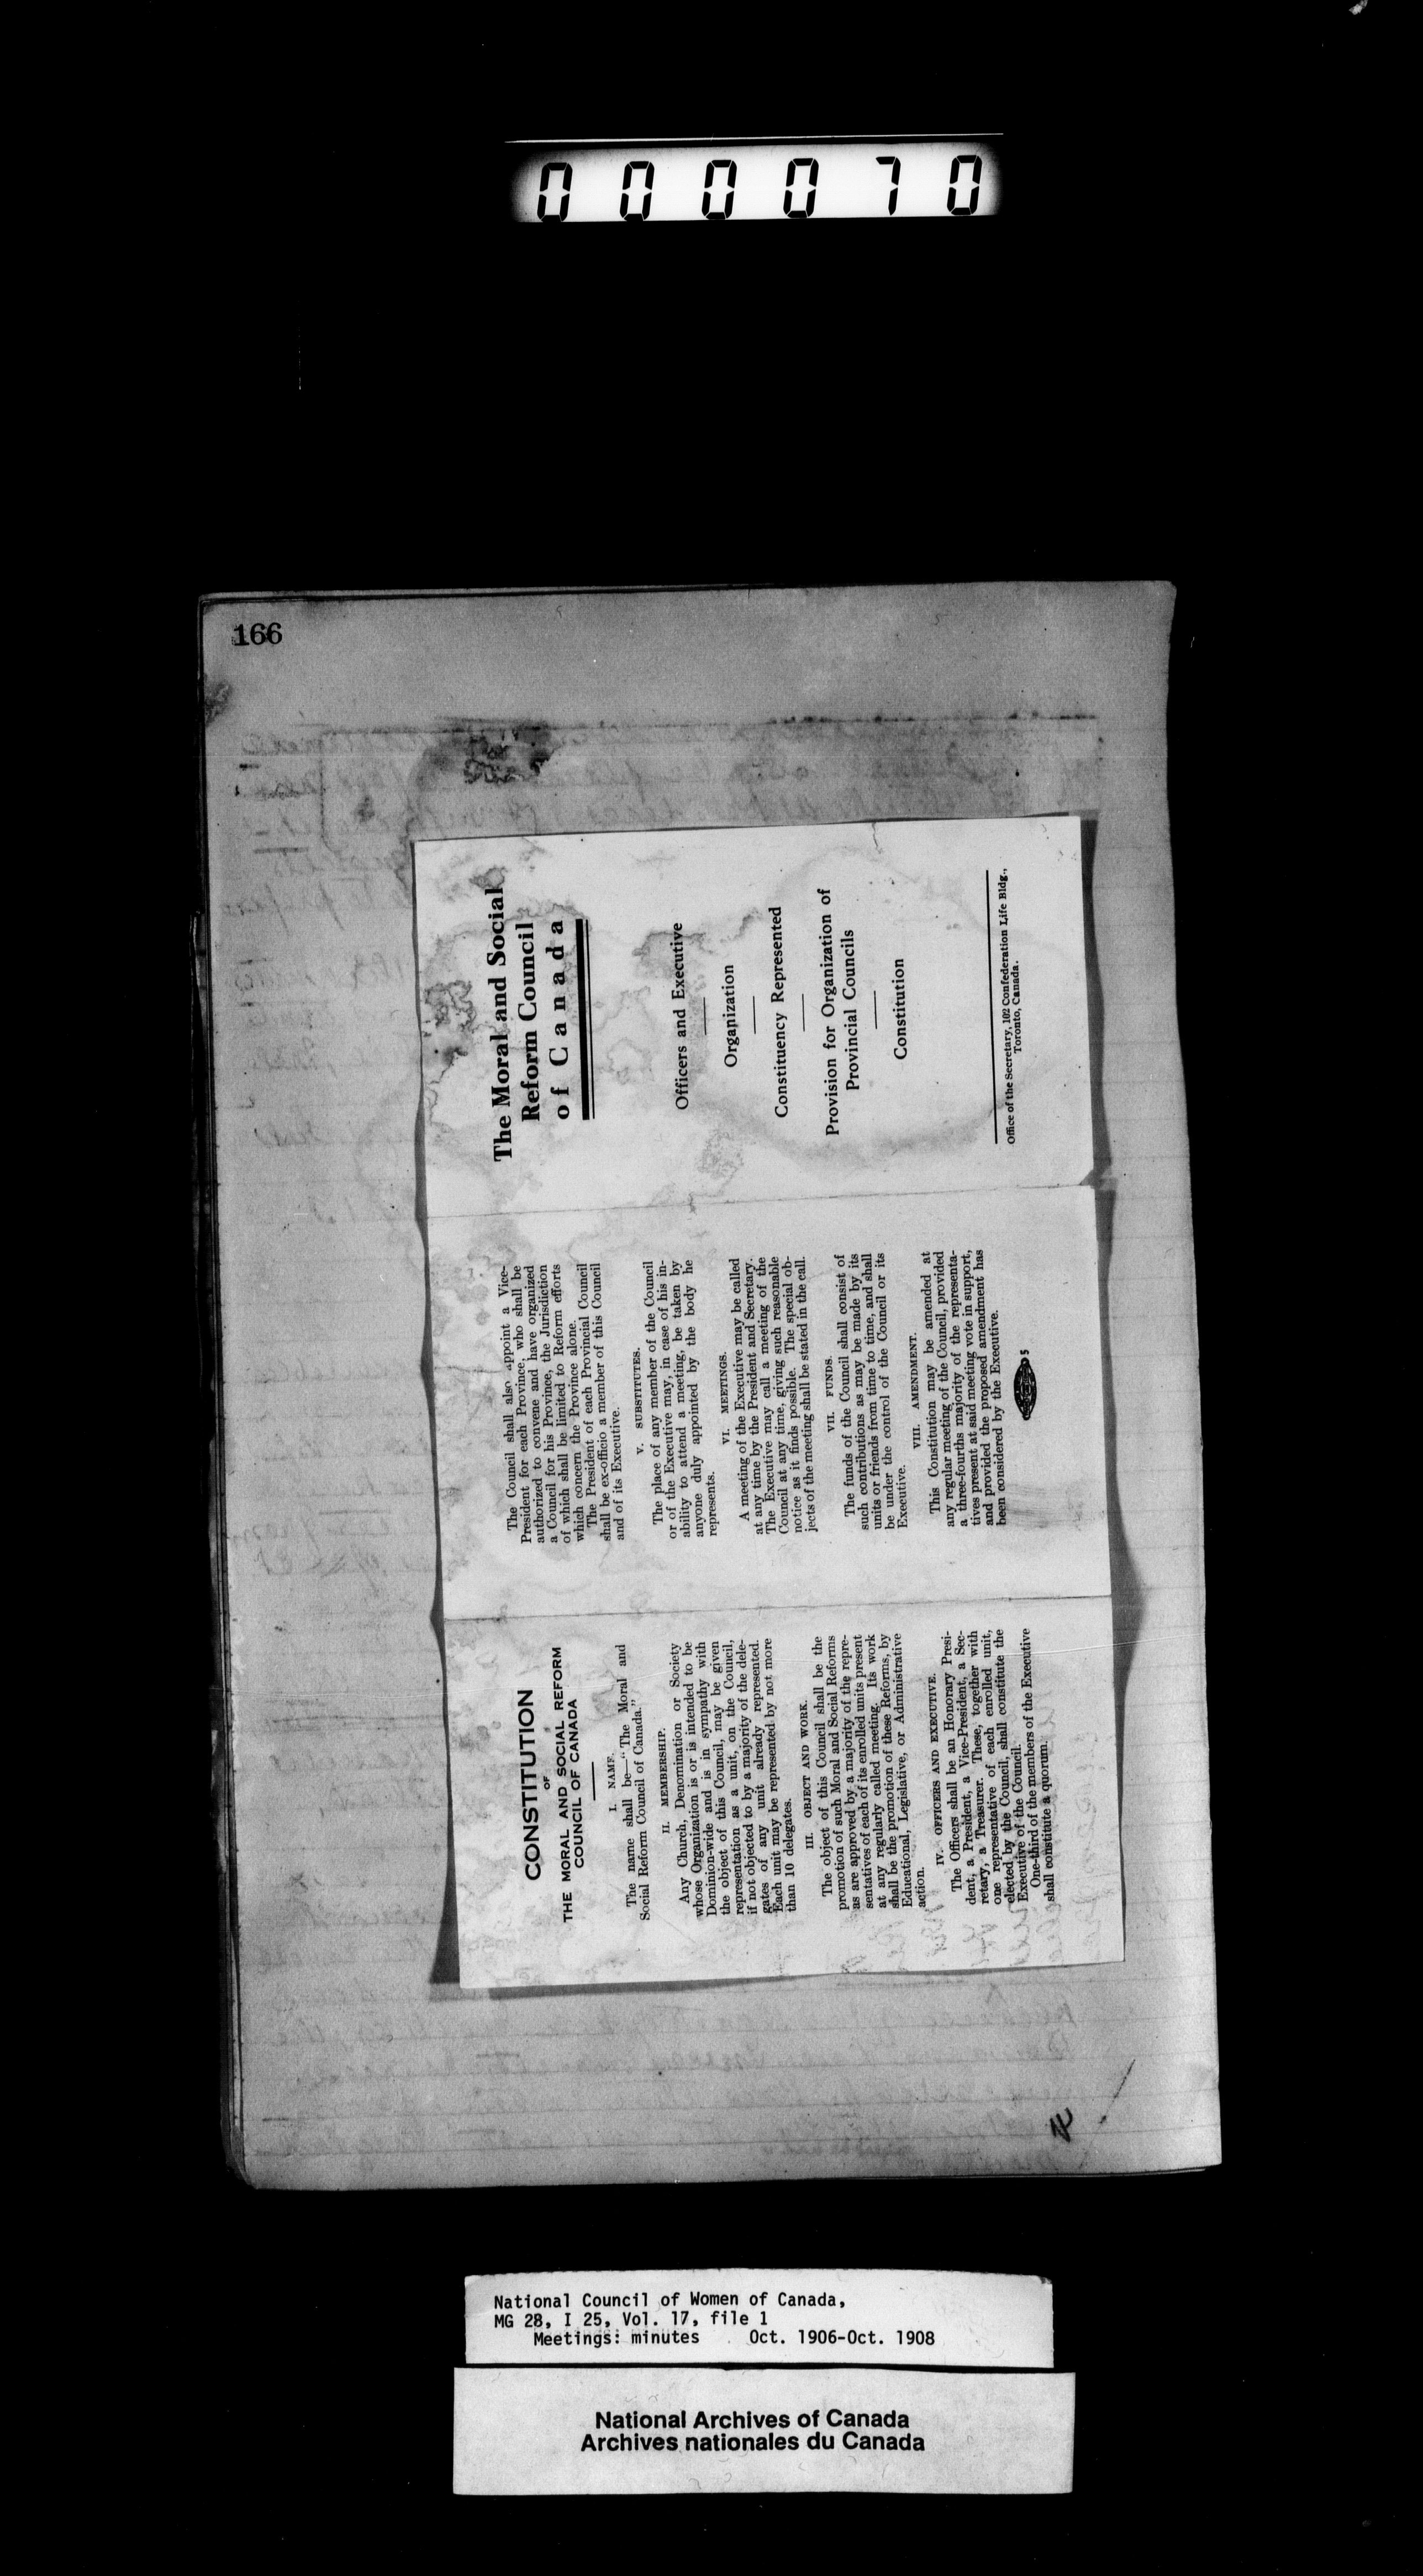 000070
166
CONSTITUTION
OF
THE MORAL AND SOCIAL REFORM
COUNCIL OF CANADA
I. NAME.
The name shall be—"The Moral and
Social Reform Council of Canada."
II. MEMBERSHIP.
Any Church, Denomination or Society
whose Organization is or is intended to be
Dominion-wide and is in sympathy with
the object of this Council, may be given
representation as a unit, on the Council,
if not objected to by a majority of the dele-
gates of any unit already represented.
Each unit may be represented by not more
than 10 delegates.
III. OBJECT AND WORK.
The object of this Council shall be the
promotion of such Moral and Social Reforms
as are approved by a majority of the repre-
sentatives of each of its enrolled units present
at any regularly called meeting. Its work
shall be the promotion of these Reforms, by
Educational, Legislative, or Administrative
action.
IV. OFFICERS AND EXECUTIVE.
The Officers shall be an Honorary Presi-
dent, a President, a Vice-President, a Sec-
retary, a Treasurer. These, together with
one representative of each enrolled unit,
elected by the Council, shall constitute the
Executive of the Council.
One-third of the members of the Executive
shall constitute a quorum.
The Council shall also appoint a Vice-
President for each Province, who shall be
authorized to convene and have organized
a Council for his Province, the Jurisdiction
of which shall be limited to Reform efforts
which concern the Province alone.
The President of each Provincial Council
shall be ex-officio a member of this Council
and of its Executive.
V. SUBSTITUTES.
The place of any member of the Council
or of the Executive may, in case of his in-
ability to attend a meeting, be taken by
anyone duly appointed by the body he
represents.
VI. MEETINGS.
A meeting of the Executive may be called
at any time by the President and Secretary.
The Executive may call a meeting of the
Council at any time, giving such reasonable
notice as it finds possible. The special ob-
jects of the meeting shall be stated in the call.
VII. FUNDS.
The funds of the Council shall consist of
such contributions as may be made by its
units or friends from time to time, and shall
be under the control of the Council or its
Executive.
VIII. AMENDMENT.
This Constitution may be amended at
any regular meeting of the Council, provided
a three-fourths majority of the representa-
tives present at said meeting vote in support,
and provided the proposed amendment has
been considered by the Executive.
5
The Moral and Social
Reform Council
of Canada
Officers and Executive
Organization
Constituency Represented
Provision for Organization of
Provincial Councils
Constitution
Office of the Secretary, 102 Confederation Life Bldg.,
Toronto, Canada.
National Council of Women of Canada,
MG 28, I 25, Vol. 17, file 1
Meetings: minutes Oct. 1906-Oct. 1908
National Archives of Canada
Archives nationales du Canada